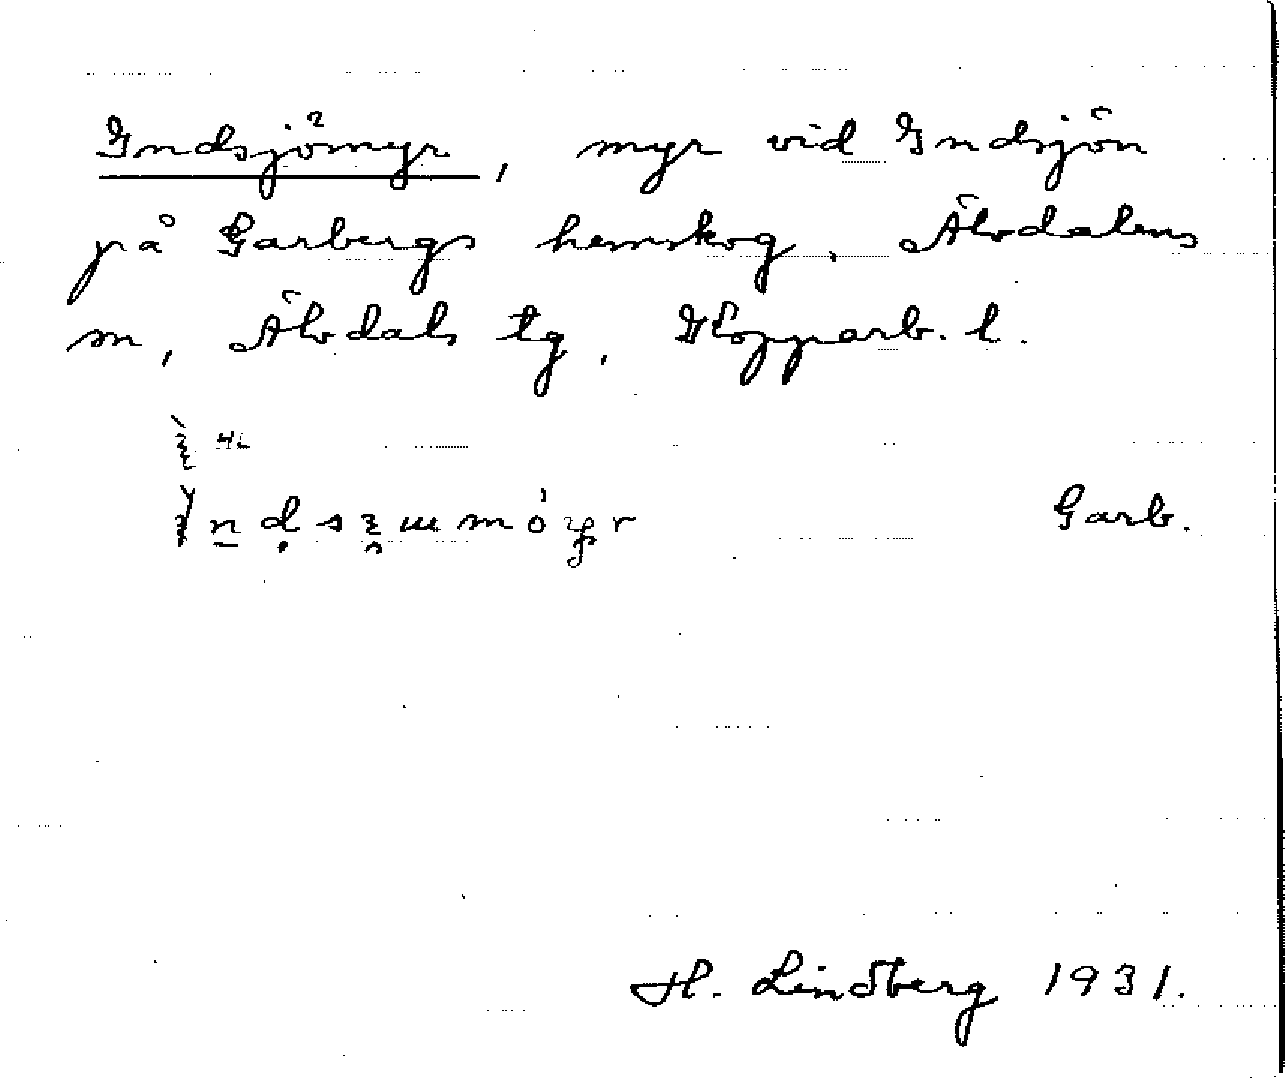 Indsjömyr, myr vid Indsjön
på Garbergs hemskog, Älvdalens
sn, Älvdals tg, Kopparb. l.
HL
Garb.
H. Lindberg 1931.